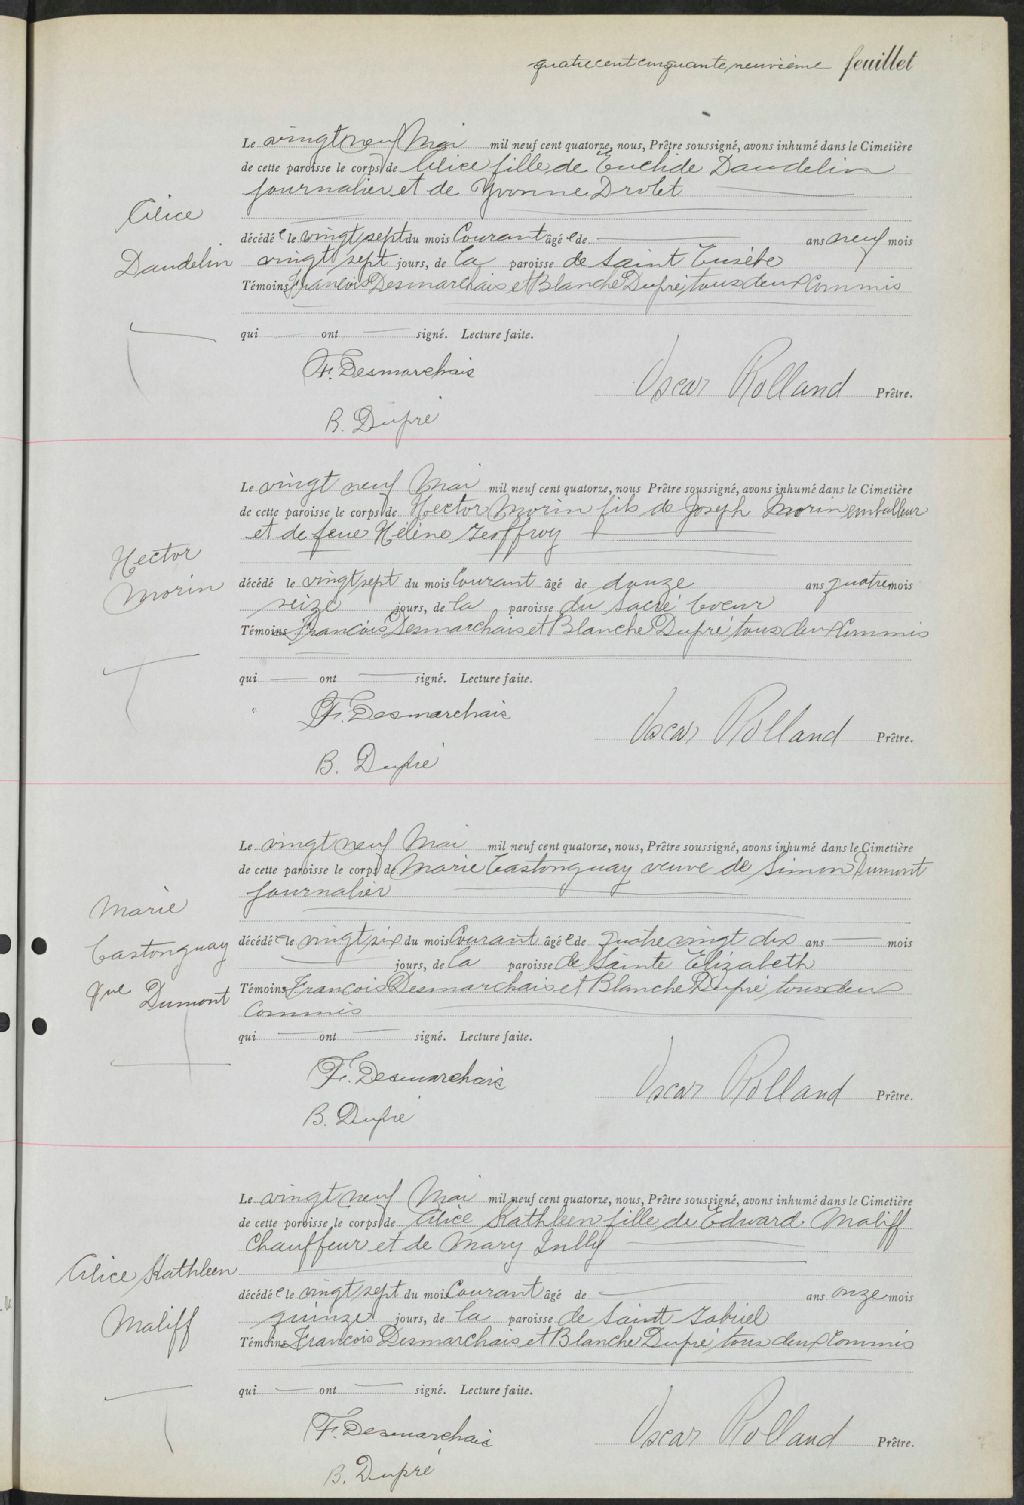 quatre cent cinquante neuvième feuillet
Le vingt neuf Mai mil neuf cent quatorze, nous, Prêtre soussigné, avons inhumé dans le Cimetière
de cette paroisse le corps de Alice fille de Euclide Daudelin
journalier et de Yvonne Drolet
Alice
Daudelin
décédé e le vingt sept du mois Courant âgé e de ans neuf mois
vingt sept jours, de la paroisse de Saint Eusèbe
Témoins François Desmarchais et Blanche Dupré, tous deux Commis
qui ont signé. Lecture faite.
F. Desmarchais
Oscar Rolland Prêtre.
B. Dupré
Le vingt neuf Mai mil neuf cent quatorze, nous Prêtre soussigné, avons inhumé dans le Cimetière
de cette paroisse le corps de Hector Morin fils de Joseph Morin emballeur
et de feue Hélène Geoffroy
Hector
Morin
décédé le vingt sept du mois Courant âgé de douze ans quatre mois
seize jours, de la paroisse du Sacré Coeur
Témoins François Desmarchais et Blanche Dupré tous deux Commis
qui ont signé. Lecture faite.
F. Desmarchais
Oscar Rolland Prêtre.
B. Dupré
Le vingt neuf Mai mil neuf cent quatorze, nous, Prêtre soussigné, avons inhumé dans le Cimetière
de cette paroisse le corps de Marie Castonguay veuve de Simon Dumont
journalier
Marie
Castonguay
Dumont
décédé e le vingt six du mois Courant âgé e de quatre vingt dix ans mois
jours, de la paroisse de Sainte Elizabeth
Témoins François Desmarchais et Blanche Dupré, tous deux
Commis
qui ont signé. Lecture faite.
F. Desmarchais
Oscar Rolland Prêtre.
B. Dupré
Le vingt neuf Mai mil neuf cent quatorze, nous, Prêtre soussigné, avons inhumé dans le Cimetière
de cette paroisse le corps de Alice Kathleen fille de Edward Maliff
Chauffeur et de Mary Lully
Alice Kathleen
Maliff
décédé e le vingt sept du mois Courant âgé de ans onze mois
quinze jours, de la paroisse de Saint Gabriel
Témoins François Desmarchais et Blanche Dupré tous deux Commis
qui ont signé. Lecture faite.
F. Desmarchais
Oscar Rolland Prêtre.
B. Dupré